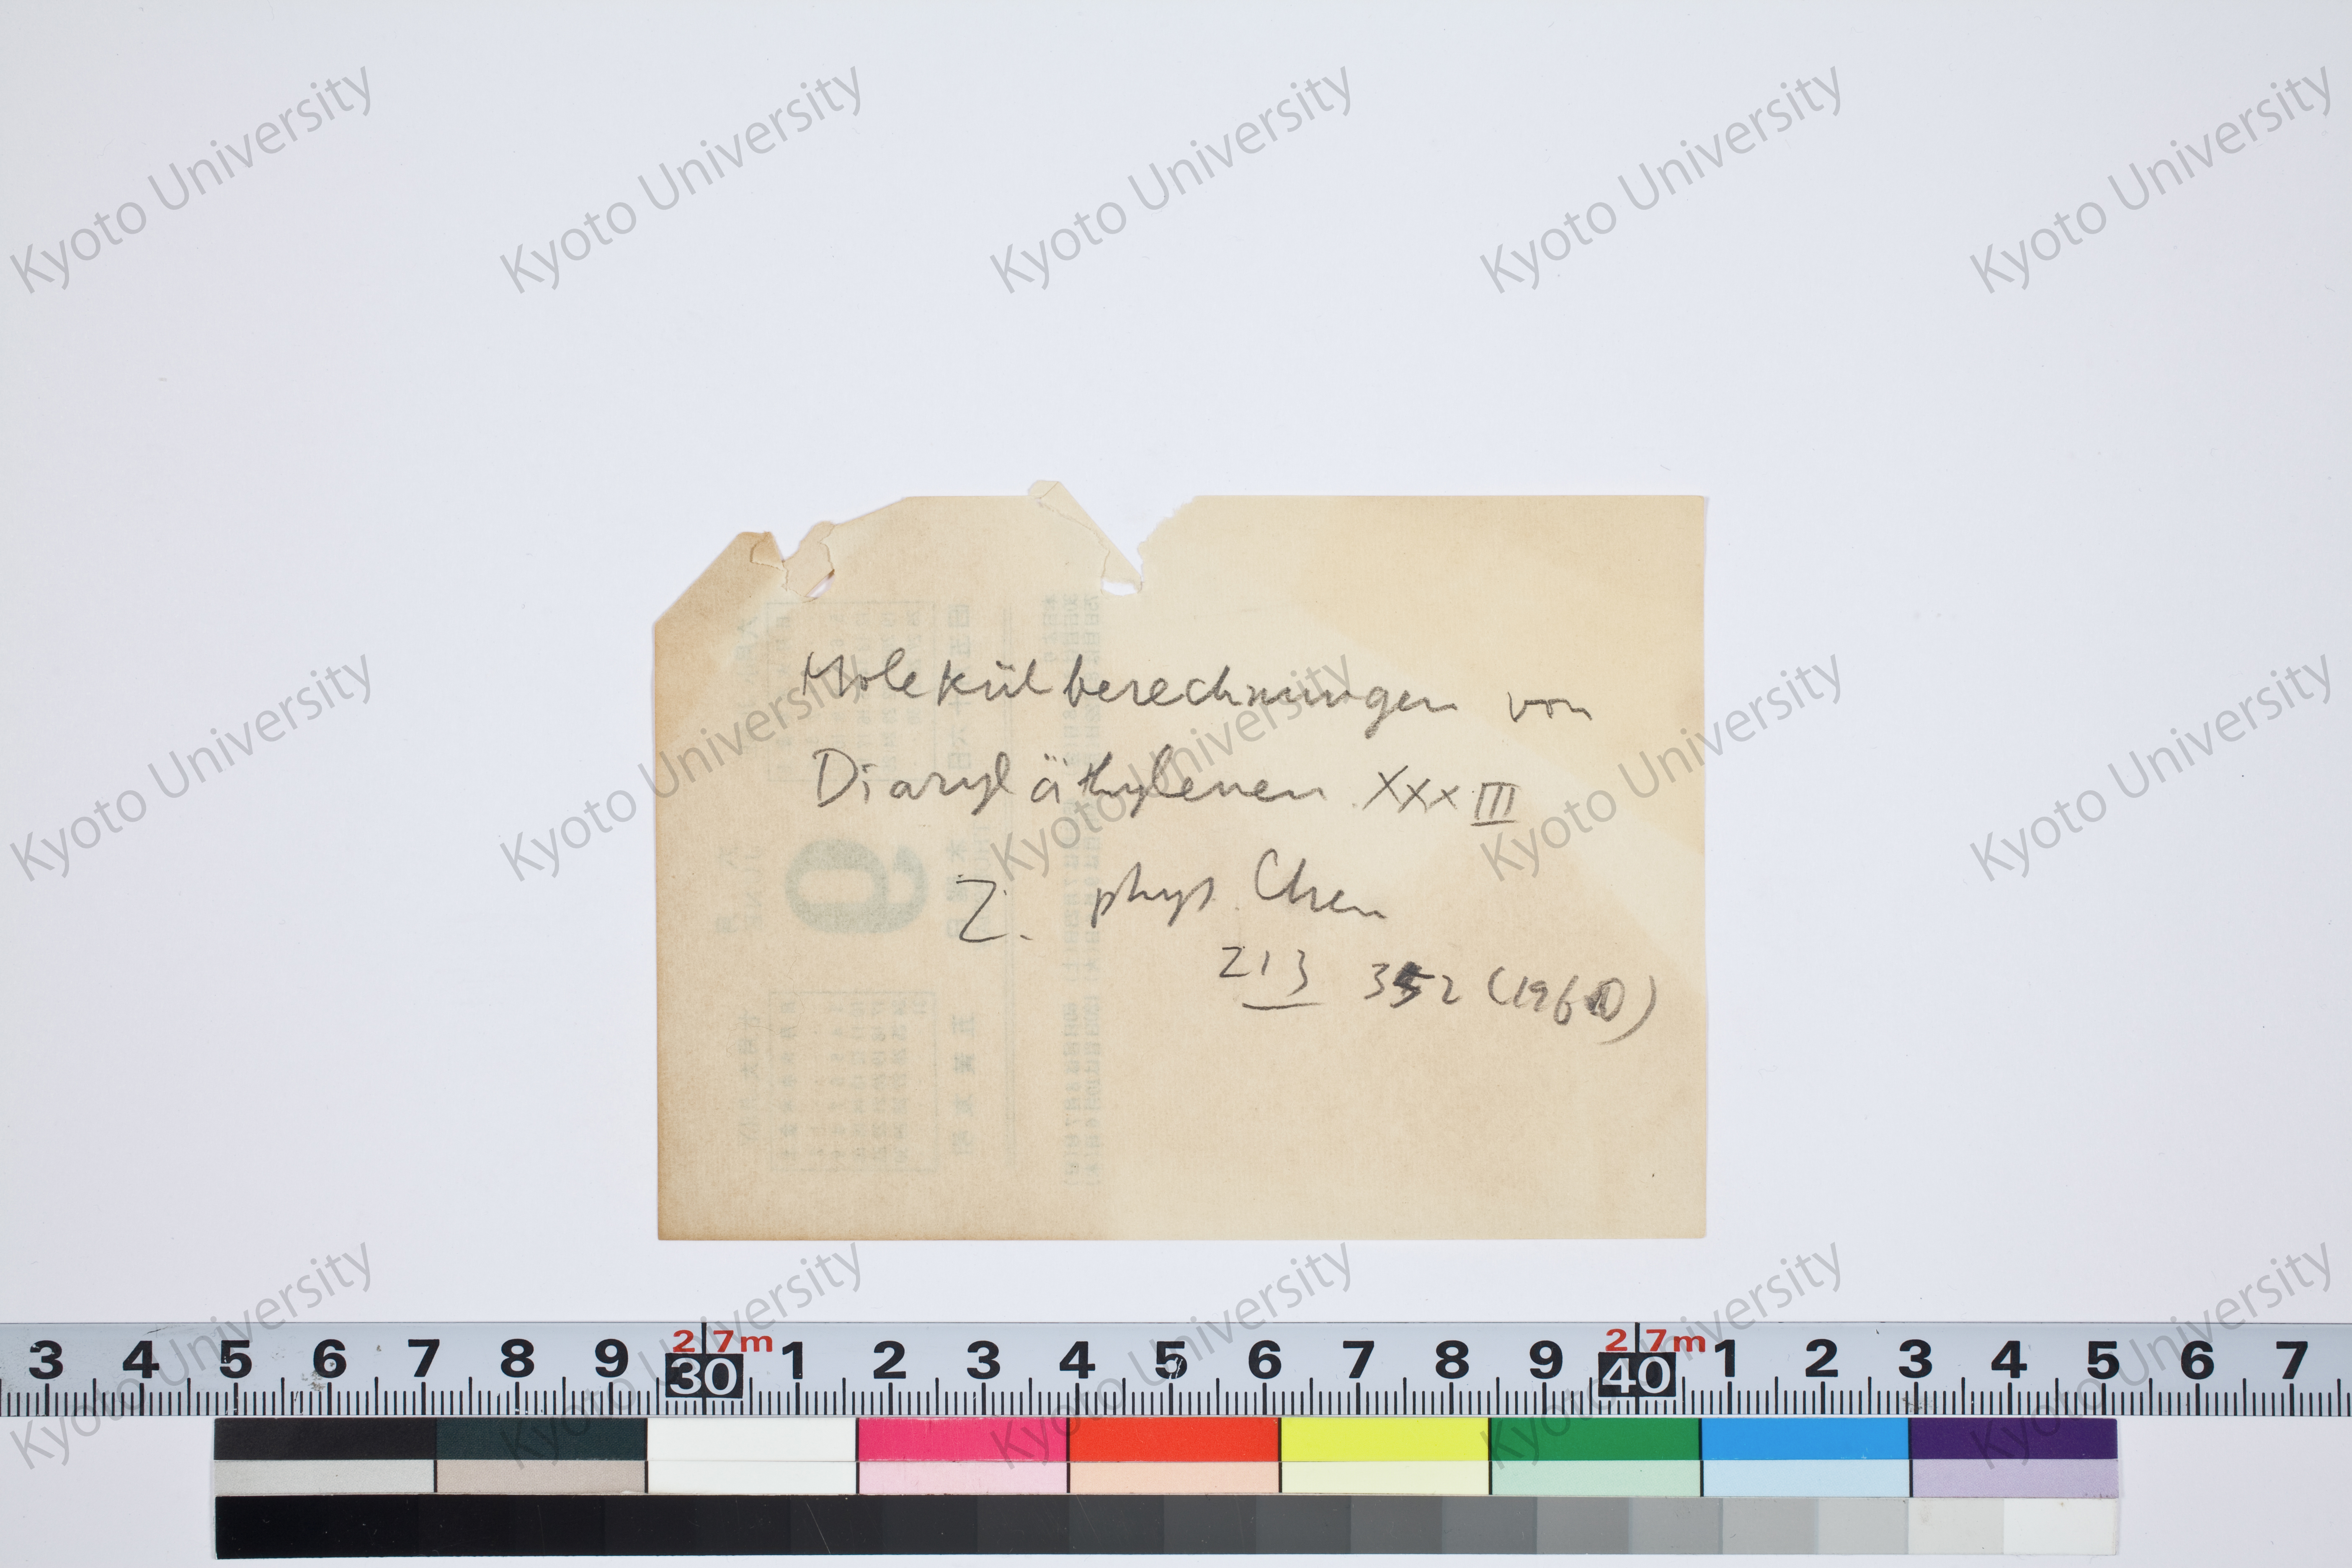 Molekülberechnungen von
Diaryläthylenen XXXIII
Z. phys. Chem
213 352 (1960)
3 4 5 6 7 8 9 30 1 2 3 4 5 6 7 8 9 40 1 2 3 4 5 6 7
2 7m 2 7m
Kyoto University Kyoto University Kyoto University Kyoto University Kyoto University
Kyoto University Kyoto University Kyoto University Kyoto University Kyoto University
Kyoto University Kyoto University Kyoto University Kyoto University Kyoto University